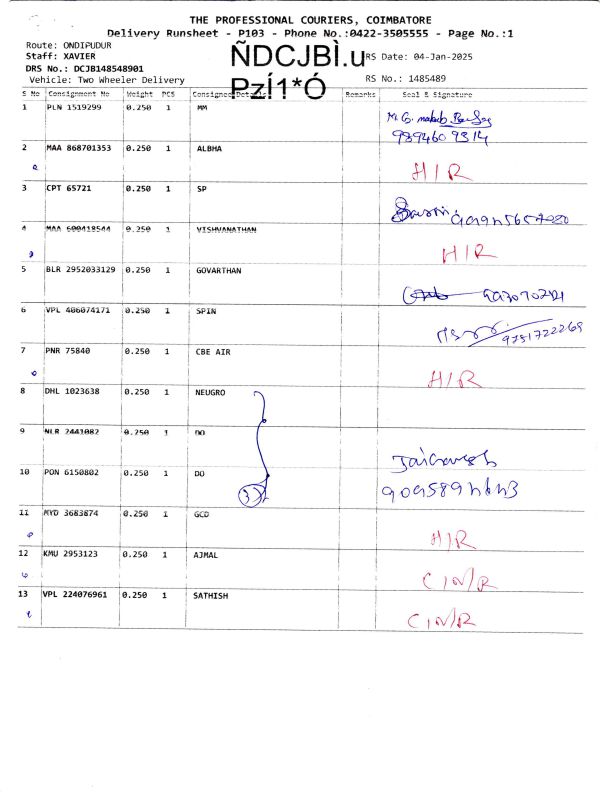 THE PROFESSIONAL COURIERS, COIMBATORE
Delivery Runsheet - P103 - Phone No.:0422-3505555 - Page No.:1
Route: ONDIPUDUR
Staff: XAVIER
DRS No.: DCJB148548901
Vehicle: Two Wheeler Delivery
ÑDCJBÌ.u
PzÍ1*Ó
RS Date: 04-Jan-2025
RS No.: 1485489
S No Consignment No Weight PCS Consignee Details Remarks Seal & Signature
1 PLN 1519299 0.250 1 MM
9894609314
2 MAA 868701353 0.250 1 ALBHA H/R
3 CPT 65721 0.250 1 SP
4 MAA 600418544 0.250 1 VISHVANATHAN H/R
5 BLR 2952033129 0.250 1 GOVARTHAN
6 VPL 406074171 0.250 1 SPIN
9751722268
7 PNR 75840 0.250 1 CBE AIR H/R
8 DHL 1023638 0.250 1 NEUGRO
9 NLR 2441082 0.250 1 DO
10 PON 6150802 0.250 1 DO 3
11 MYD 3683874 0.250 1 GCD H/R
12 KMU 2953123 0.250 1 AJMAL C/N/R
13 VPL 224076961 0.250 1 SATHISH C/N/R